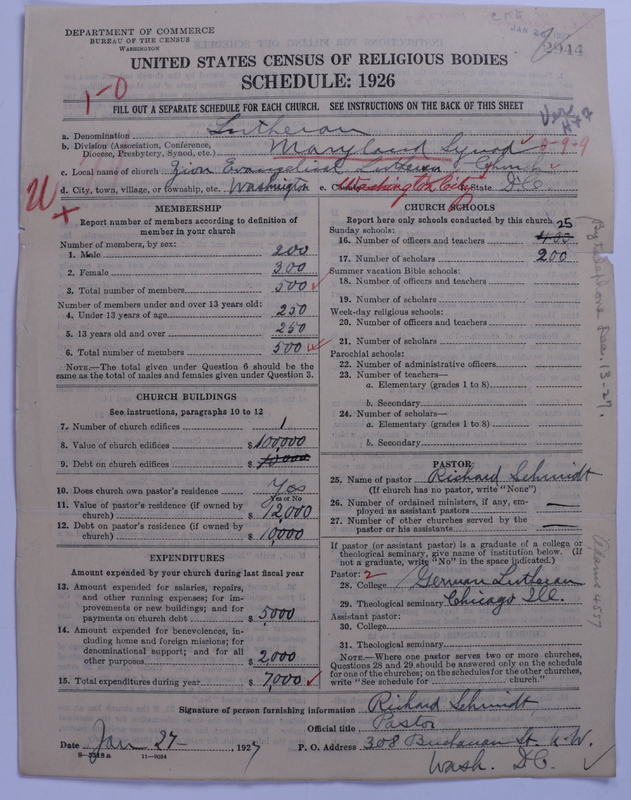 DEPARTMENT OF COMMERCE
BUREAU OF THE CENSUS
WASHINGTON
JAN 2
2944
UNITED STATES CENSUS OF RELIGIOUS BODIES
SCHEDULE: 1926
1-0
FILL OUT A SEPARATE SCHEDULE FOR EACH CHURCH. SEE INSTRUCTIONS ON THE BACK OF THIS SHEET
Ver
a. Denomination Lutheran
b. Division (Association, Conference, Diocese, Presbytery, Synod, etc.) Maryland Synod
c. Local name of church Zion Evangelical Lutheran Church
d. City, town, village, or township, etc. Washington e. County Washington City State D.C.
MEMBERSHIP
Report number of members according to definition of
member in your church
Number of members, by sex:
1. Male 200
2. Female 300
3. Total number of members 500
Number of members under and over 13 years old:
4. Under 13 years of age 250
5. 13 years old and over 250
6. Total number of members 500
NOTE.—The total given under Question 6 should be the
same as the total of males and females given under Question 3.
CHURCH BUILDINGS
See instructions, paragraphs 10 to 12
7. Number of church edifices 1
8. Value of church edifices $100,000
9. Debt on church edifices $
10. Does church own pastor's residence Yes
Yes or No
11. Value of pastor's residence (if owned by
church) $12,000
12. Debt on pastor's residence (if owned by
church) $10,000
EXPENDITURES
Amount expended by your church during last fiscal year
13. Amount expended for salaries, repairs,
and other running expenses; for im-
provements or new buildings; and for
payments on church debt $5,000
14. Amount expended for benevolences, in-
cluding home and foreign missions; for
denominational support; and for all
other purposes $2,000
15. Total expenditures during year $7,000
CHURCH SCHOOLS
Report here only schools conducted by this church
Sunday schools:
16. Number of officers and teachers 25
17. Number of scholars 200
Summer vacation Bible schools:
18. Number of officers and teachers
19. Number of scholars
Week-day religious schools:
20. Number of officers and teachers
21. Number of scholars
Parochial schools:
22. Number of administrative officers
23. Number of teachers—
a. Elementary (grades 1 to 8)
b. Secondary
24. Number of scholars—
a. Elementary (grades 1 to 8)
b. Secondary
PASTOR
25. Name of pastor Richard Schmidt
(If church has no pastor, write "None")
26. Number of ordained ministers, if any, em-
ployed as assistant pastors —
27. Number of other churches served by the
pastor or his assistants —
If pastor (or assistant pastor) is a graduate of a college or
theological seminary, give name of institution below. (If
not a graduate, write "No" in the space indicated.)
Pastor: 2
28. College German Lutheran
29. Theological seminary Chicago Ill.
Assistant pastor:
30. College
31. Theological seminary
NOTE.—Where one pastor serves two or more churches,
Questions 28 and 29 should be answered only on the schedule
for one of the churches; on the schedules for the other churches,
write "See schedule for church."
By telephone Dec. 13-27.
Adams 4577
Signature of person furnishing information Richard Schmidt
Official title Pastor
Date Jan 27-, 1927
P. O. Address 308 Buchanan St. N.W.
Wash. D.C.
8-5918a 11-9054